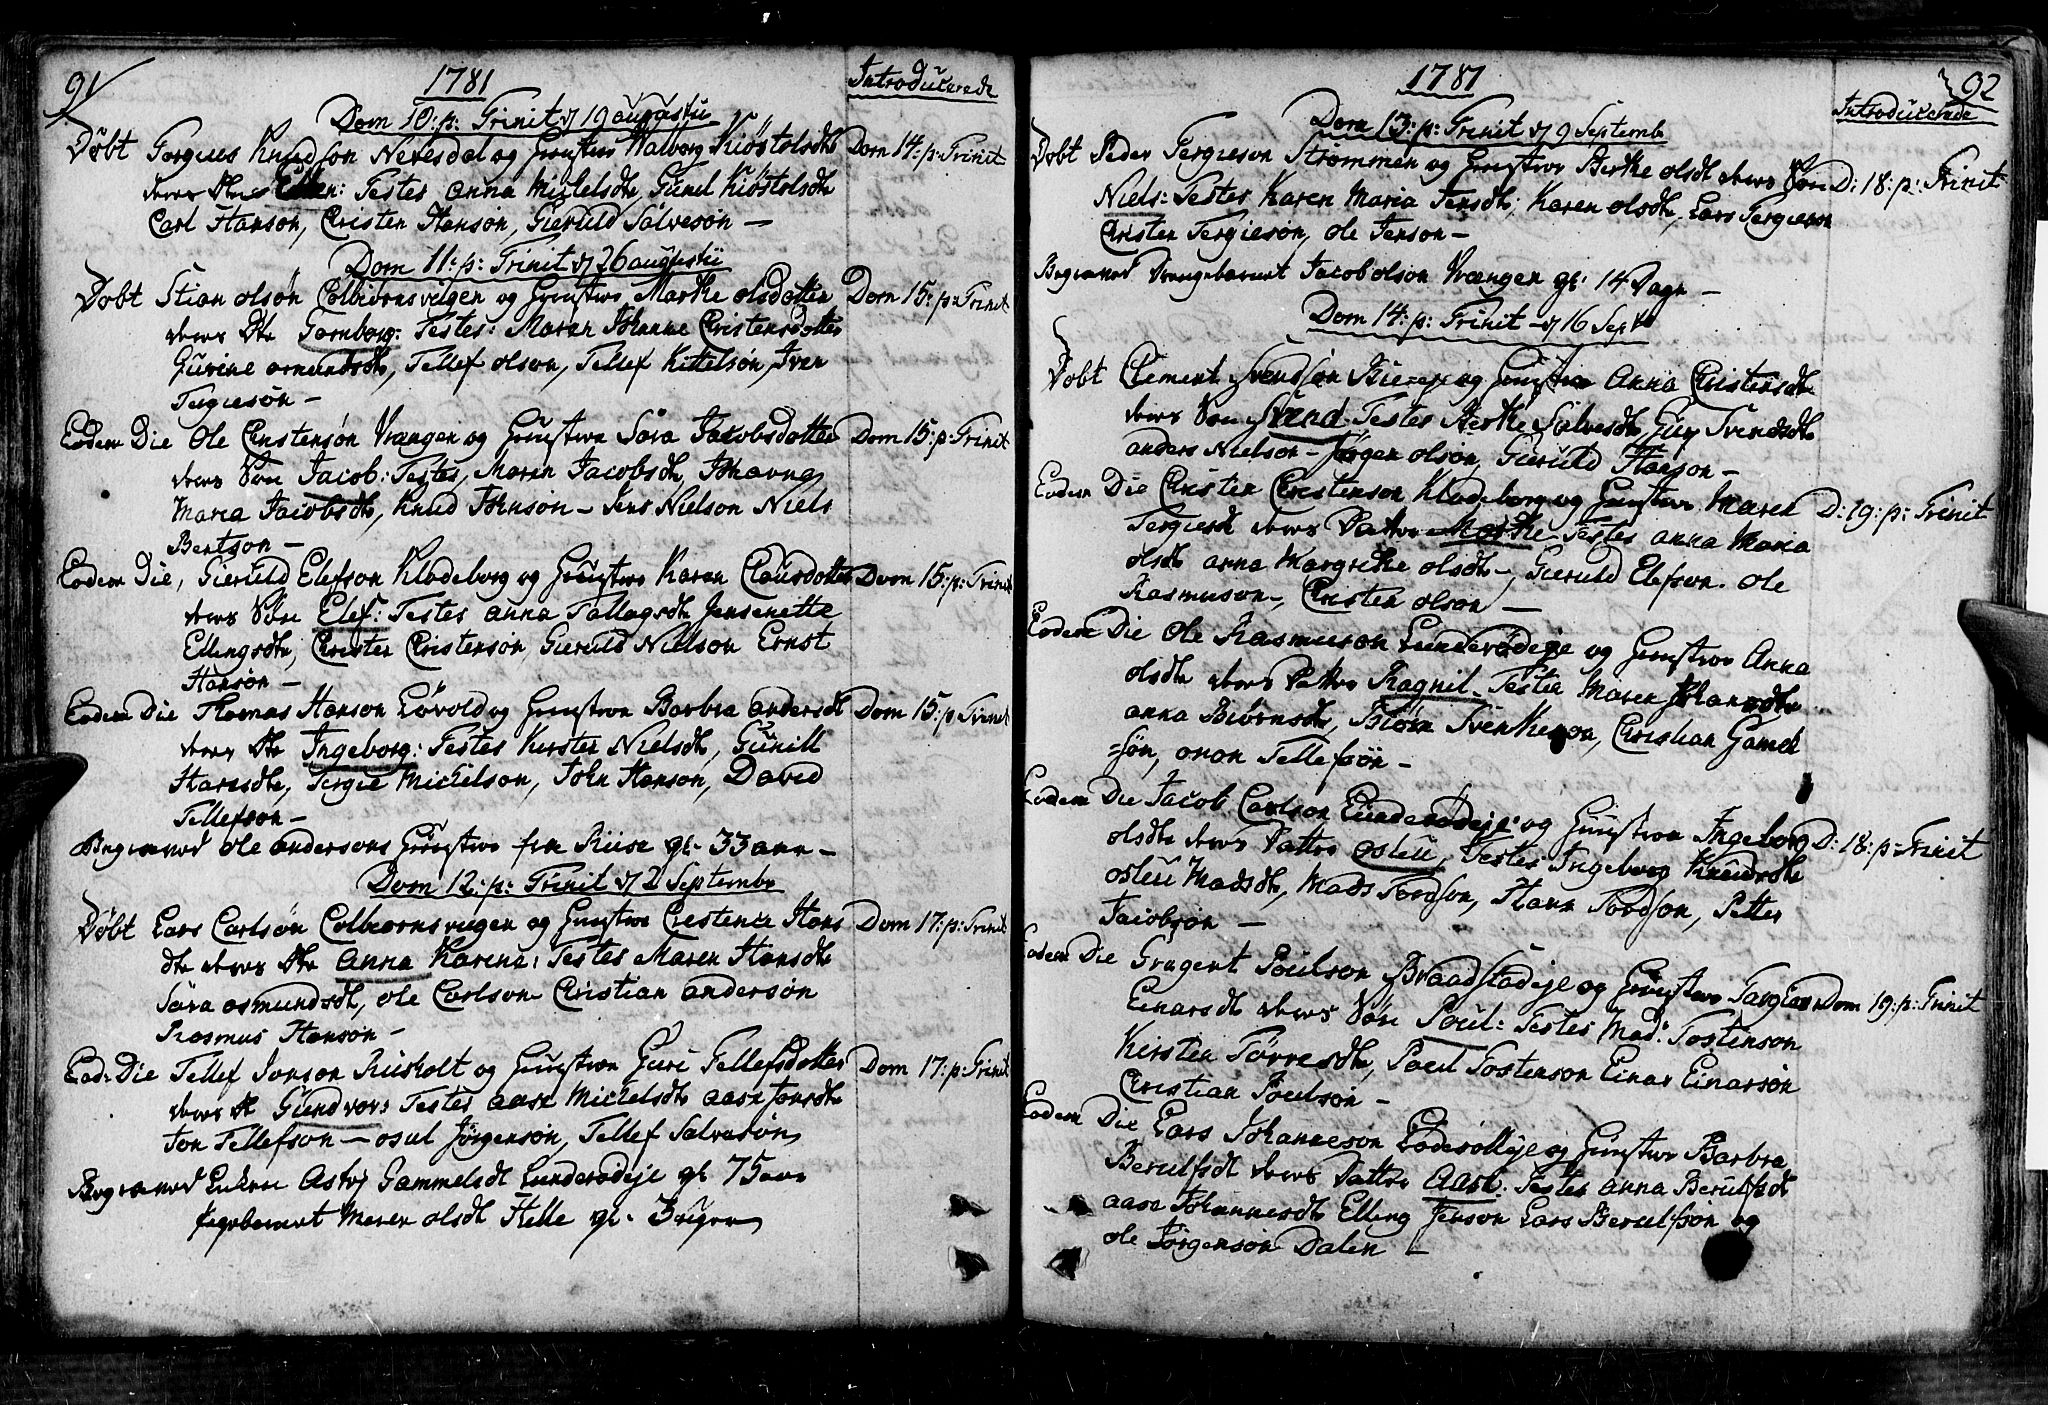 91
1781
Introducerede
Dom 10: p: Trinit d 19 augustii
Døbt Torgius Knudsøn Nevesdal og Hustroe Valborg Kiøstolsdt Dom 14: p: Trinit
deres Dtr Ellen: Testes Anna Mickelsdt, Gunel Kiøstolsdt
Carl Hansøn, Cristen Hanson, Gieruld Salvesøn —
Dom 11: p: Trinit d 26 augustii
Døbt Stian olsøn Colbiørnsveigen og Hustroe Marthe olsdotter Dom 15: p: Trinit
deres Dtr Tornborg: Testes: Maren Johanne Cristensdotter
Gurine omundsdt, Tellef olson, Tellef Kittelsøn, Iver
Tergiesøn —
Eodem Die Ole Cristensøn Vrangen og Hustroe Sara Jacobsdotter Dom 15: p: Trinit
deres Søn Jacob: Testes, Maren Jacobsdt, Johanna
Maria Jacobsdt, Knud Johnsøn — Jens Nielson Niels
Bentson —
Eodem Die, Gieruld Elefson Klodeborg og Hustroe Karen Clausdotter Dom 15: p: Trinit
deres Søn Elef: Testes Anna Tallagsdt Jensenette
Ellingsdt, Crister Cristensøn, Gieruld Nielson Ernst
Hansøn —
Eodem Die Thomas Hanson Løvold og Hustroe Barbra andersdt Dom 15: p: Trinit
deres Dtr Ingeborg: Testes Kirsten Nielsdt, Gunill
Hansdt, Tergie Mickelson, John Hansøn, David
Tellefson —
Begravet ole andersons Hustroe fra Riise gl. 33 aar —
Dom 12: p: Trinit d 2 Septembr
Døbt Lars Carlsøn Colbiørnsveigen og Hustroe Cristence Hans Dom 17: p: Trinit
dtr deres Dtr Anna Karina: Testes Maren Hansdt
Sara osmundsdt, ole Carlson Cristian andersøn
Rasmus Hansøn —
Eod: Die Tellef Jonson Risholt og Hustroe Guri Tellefsdotter Dom 17: p: Trinit
deres Dt Gundvor: Testes aase Mickelsdt aase Jonsdt
Jon Tellefson — osul Jørgensøn, Tellef Salvesøn
Begravet Enken Astrj Gammelsdt Lunderødeje gl 75 aar
Pigebarnet Maren olsdt Helle gl. 3 uger
92
1781
Introducerede
Dom 13: p: Trinit d 9 Septembr
Døbt Peder Tergieson Strømmen og Hustroe Berthe olsdt deres Søn D: 18: p: Trinit
Niels: Testes Karen Maria Jensdt, Karen olsdt, Lars Tergieson
Cristen Tergiesøn, ole Jensøn —
Begravet Drengebarnet Jacob olson Vrangen gl: 14 Dage —
Dom 14: p: Trinit d 16 Septbr
Døbt Clement Svendsøn og Hustroe Anna Cristensdt
deres Søn Svend Testes Berthe Salvesdt Gury Svendsdt
anders Nielson — Jørgen olson, Gieruld Hanson —
Eodem Die Cristen Cristenson Klodeborg og Hustroe Maren D: 19: p: Trinit
Tergiesdt deres Datter Marthe Testes Anna Maria
olsdt anna Margrethe olsdt, Gieruld Elefson. ole
Rasmuson, Cristen olson —
Eodem Die Ole Rasmuson Lunderødeje og Hustroe Anna
olsdt deres Datter Ragnil. Testes Maren Johansdt
anna Biørnsdt, Biørn Svenkeson, Christian Gamel
=søn, onon Tellefsøn —
Eodem Die Jacob Carlson Lunderødeje og Hustroe Ingeborg D: 18: p: Trinit
olsdt deres Datter osleu, Testes Ingeborg Knudsdt
osleu Madsdt, Mads Tordson, Hans Tordsøn, Petter
Jacobsøn —
Eodem Die Gregert Poulson Braadstadeje og Hustroe Targier Dom 19: p: Trinit
Einarsdt deres Søn Poul: Testes Mad: Tostenson
Kirsten Torresdt, Poul Tostenson Einar Einarsøn
Christian Poulsøn —
Eodem Die Lars Johanneson og Hustroe Barbra
Berulfsdt deres Datter Aase: Testes anna Berulfsdt
aase Johannesdt Elling Jenson Lars Berulfsøn og
ole Jørgenson Dalen —